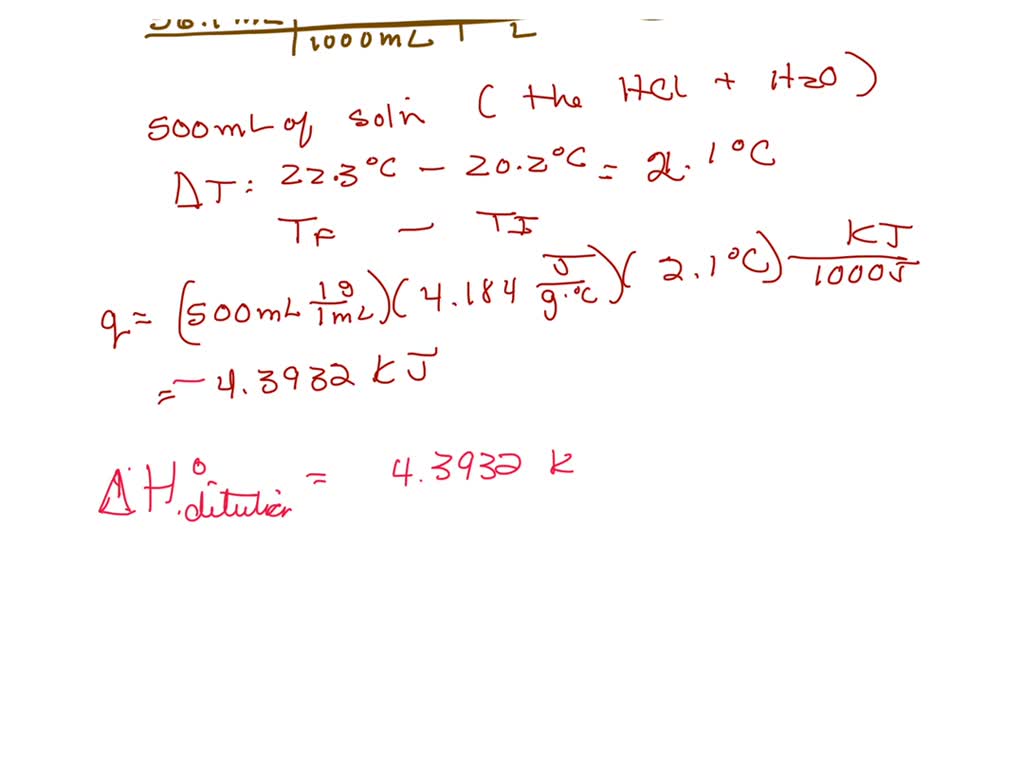 1000mL | L
500mL of soln (the HCl + H2O)
ΔT: 22.3°C - 20.2°C = 2.1°C
TF - TI
q = (500mL 1g/1mL)(4.184 J/g·°C)(2.1°C) KJ/1000J
= -4.3932 KJ
ΔH°dilution = 4.3932 K